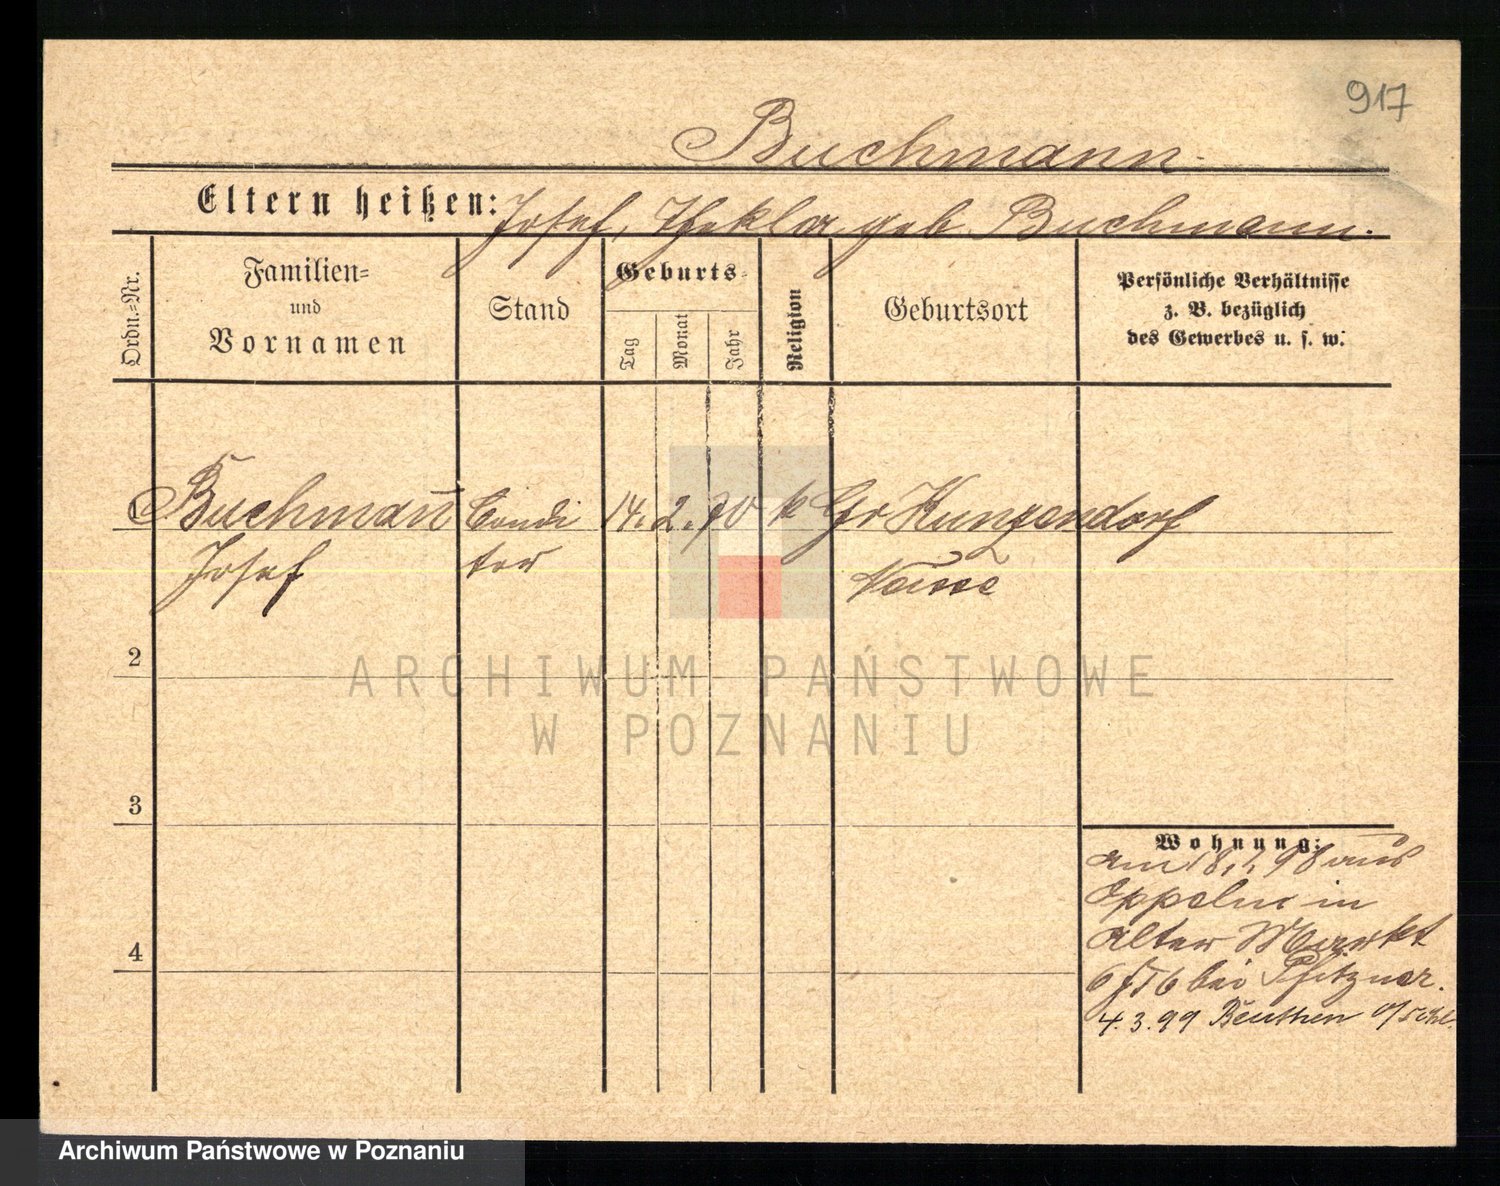 917
Buchmann.
Eltern heißen: Josef, Thekla geb. Buchmann.
Ordn.=Nr.
Familien=
und
Vornamen
Stand
Geburts=
Tag
Monat
Jahr
Religion
Geburtsort
Persönliche Verhältnisse
z. B. bezüglich
des Gewerbes u. s. w.
1 Buchman̄ Condi 14. 2. 70 k Gr Kunzendorf
Josef tor Neisse
2
3
4
Wohnung:
am 18. 1. 98 aus
Oppeln in
Alter Markt
bei Pfitzner.
4. 3. 99 Beuthen o/schl.
ARCHIWUM PAŃSTWOWE
W POZNANIU
Archiwum Państwowe w Poznaniu